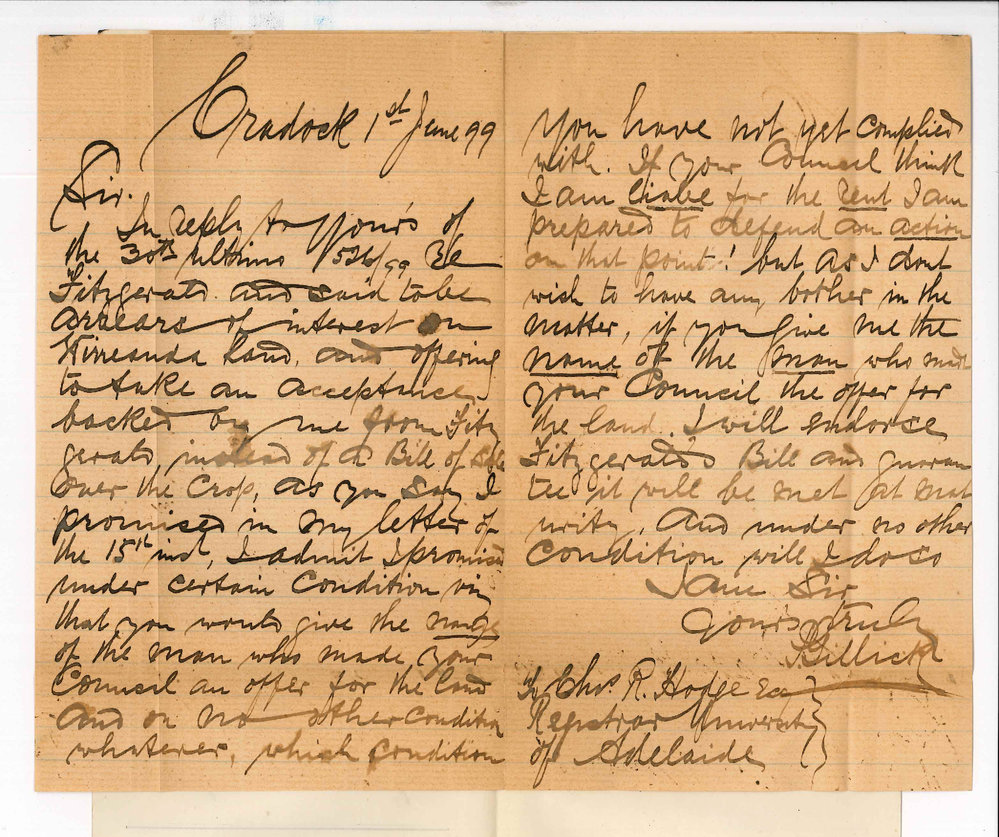 Cradock 1st June 99
Sir.
In reply to yours of
the 30th Ultimo 1526/99 Re
Fitzgerald. and said to be
arrears of interest on
Wirreanda Land, and offering
to take an acceptance
backed by me from Fitz
gerald, instead of a Bill of Sale
over the Crop, as you say I
promised in my letter of
the 15th inst, I admit I promised
under certain Condition viz
that you would give the name
of the man who made your
Council an offer for the land
and on no other Condition
whatever, which condition
you have not yet complied
with. If your Council think
I am liable for the rent I am
prepared to defend an action
on that point! but as I dont
wish to have any bother in the
matter, if you give me the
name of the man who made
your Council the offer for
the land. I will endorse
Fitzgerald's Bill and guaran
tee it will be met at mat
urity, and under no other
Condition will I do so
I am Sir
Yours truly
To Chas. R. Hodge Esq
Registrar University
of Adelaide